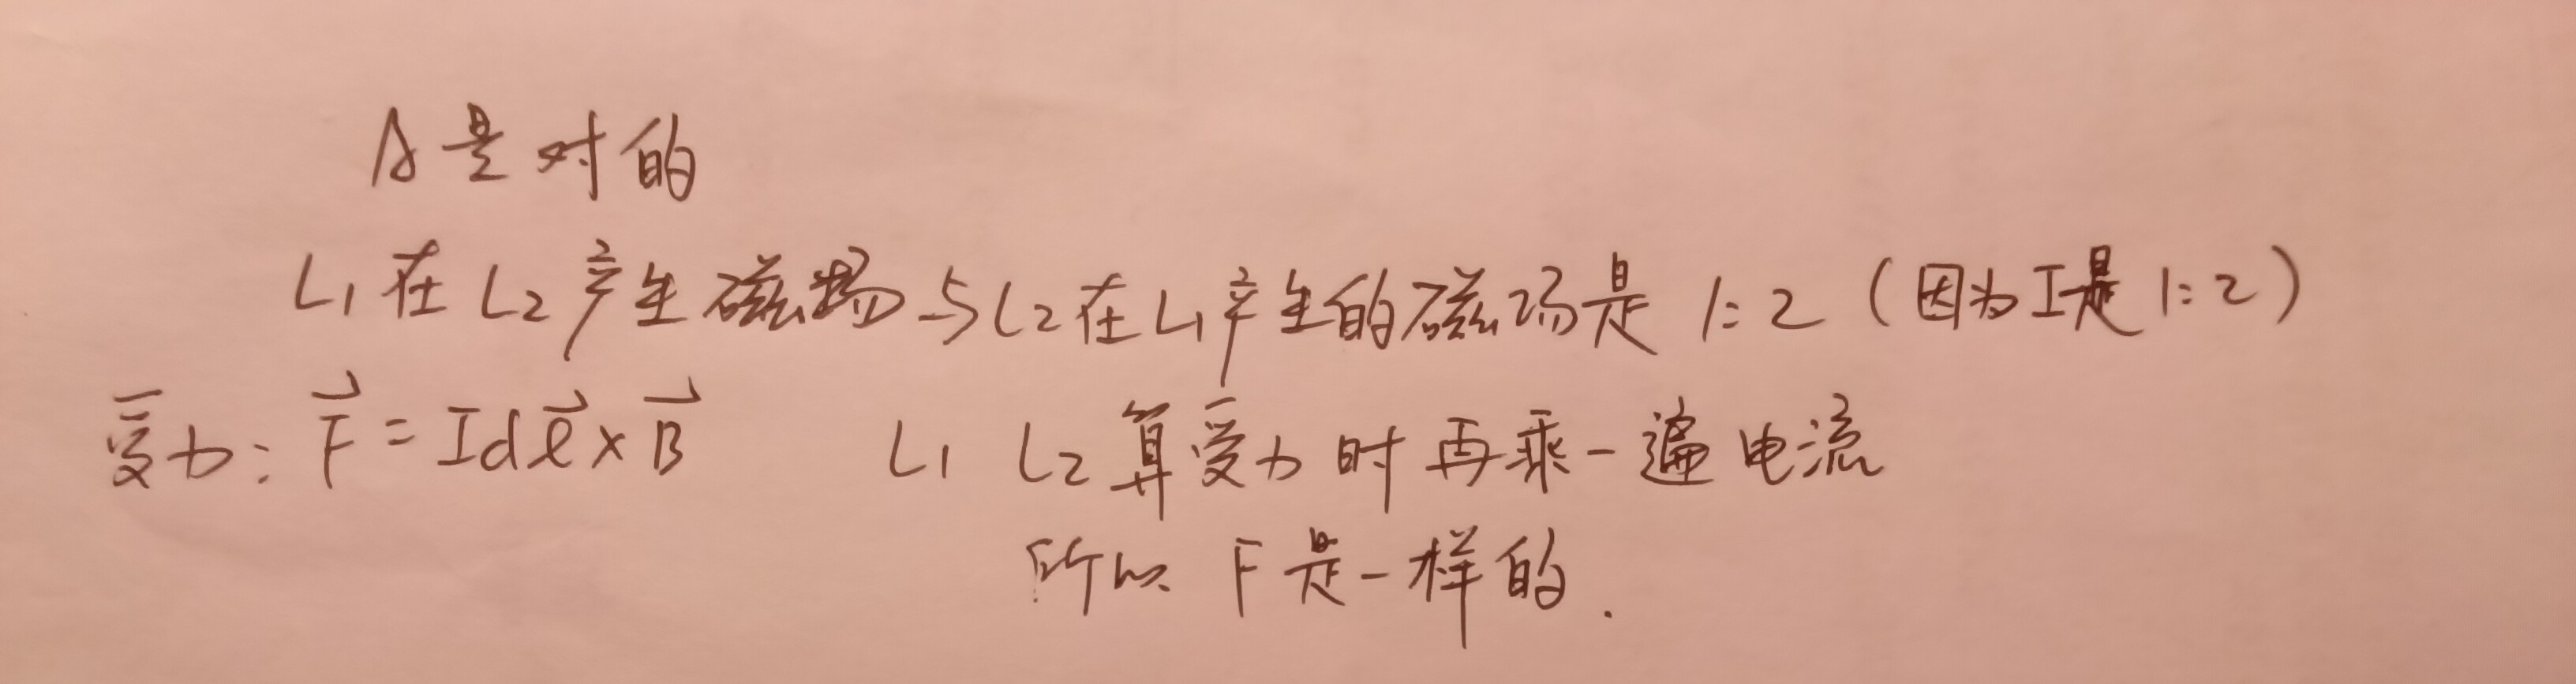 A是对的
L₁在L₂产生磁场与L₂在L₁产生的磁场是 1:2 (因为I是1:2)
受力: F⃗ = Idℓ⃗×B⃗ L₁ L₂算受力时再乘一遍电流
所以 F是一样的.